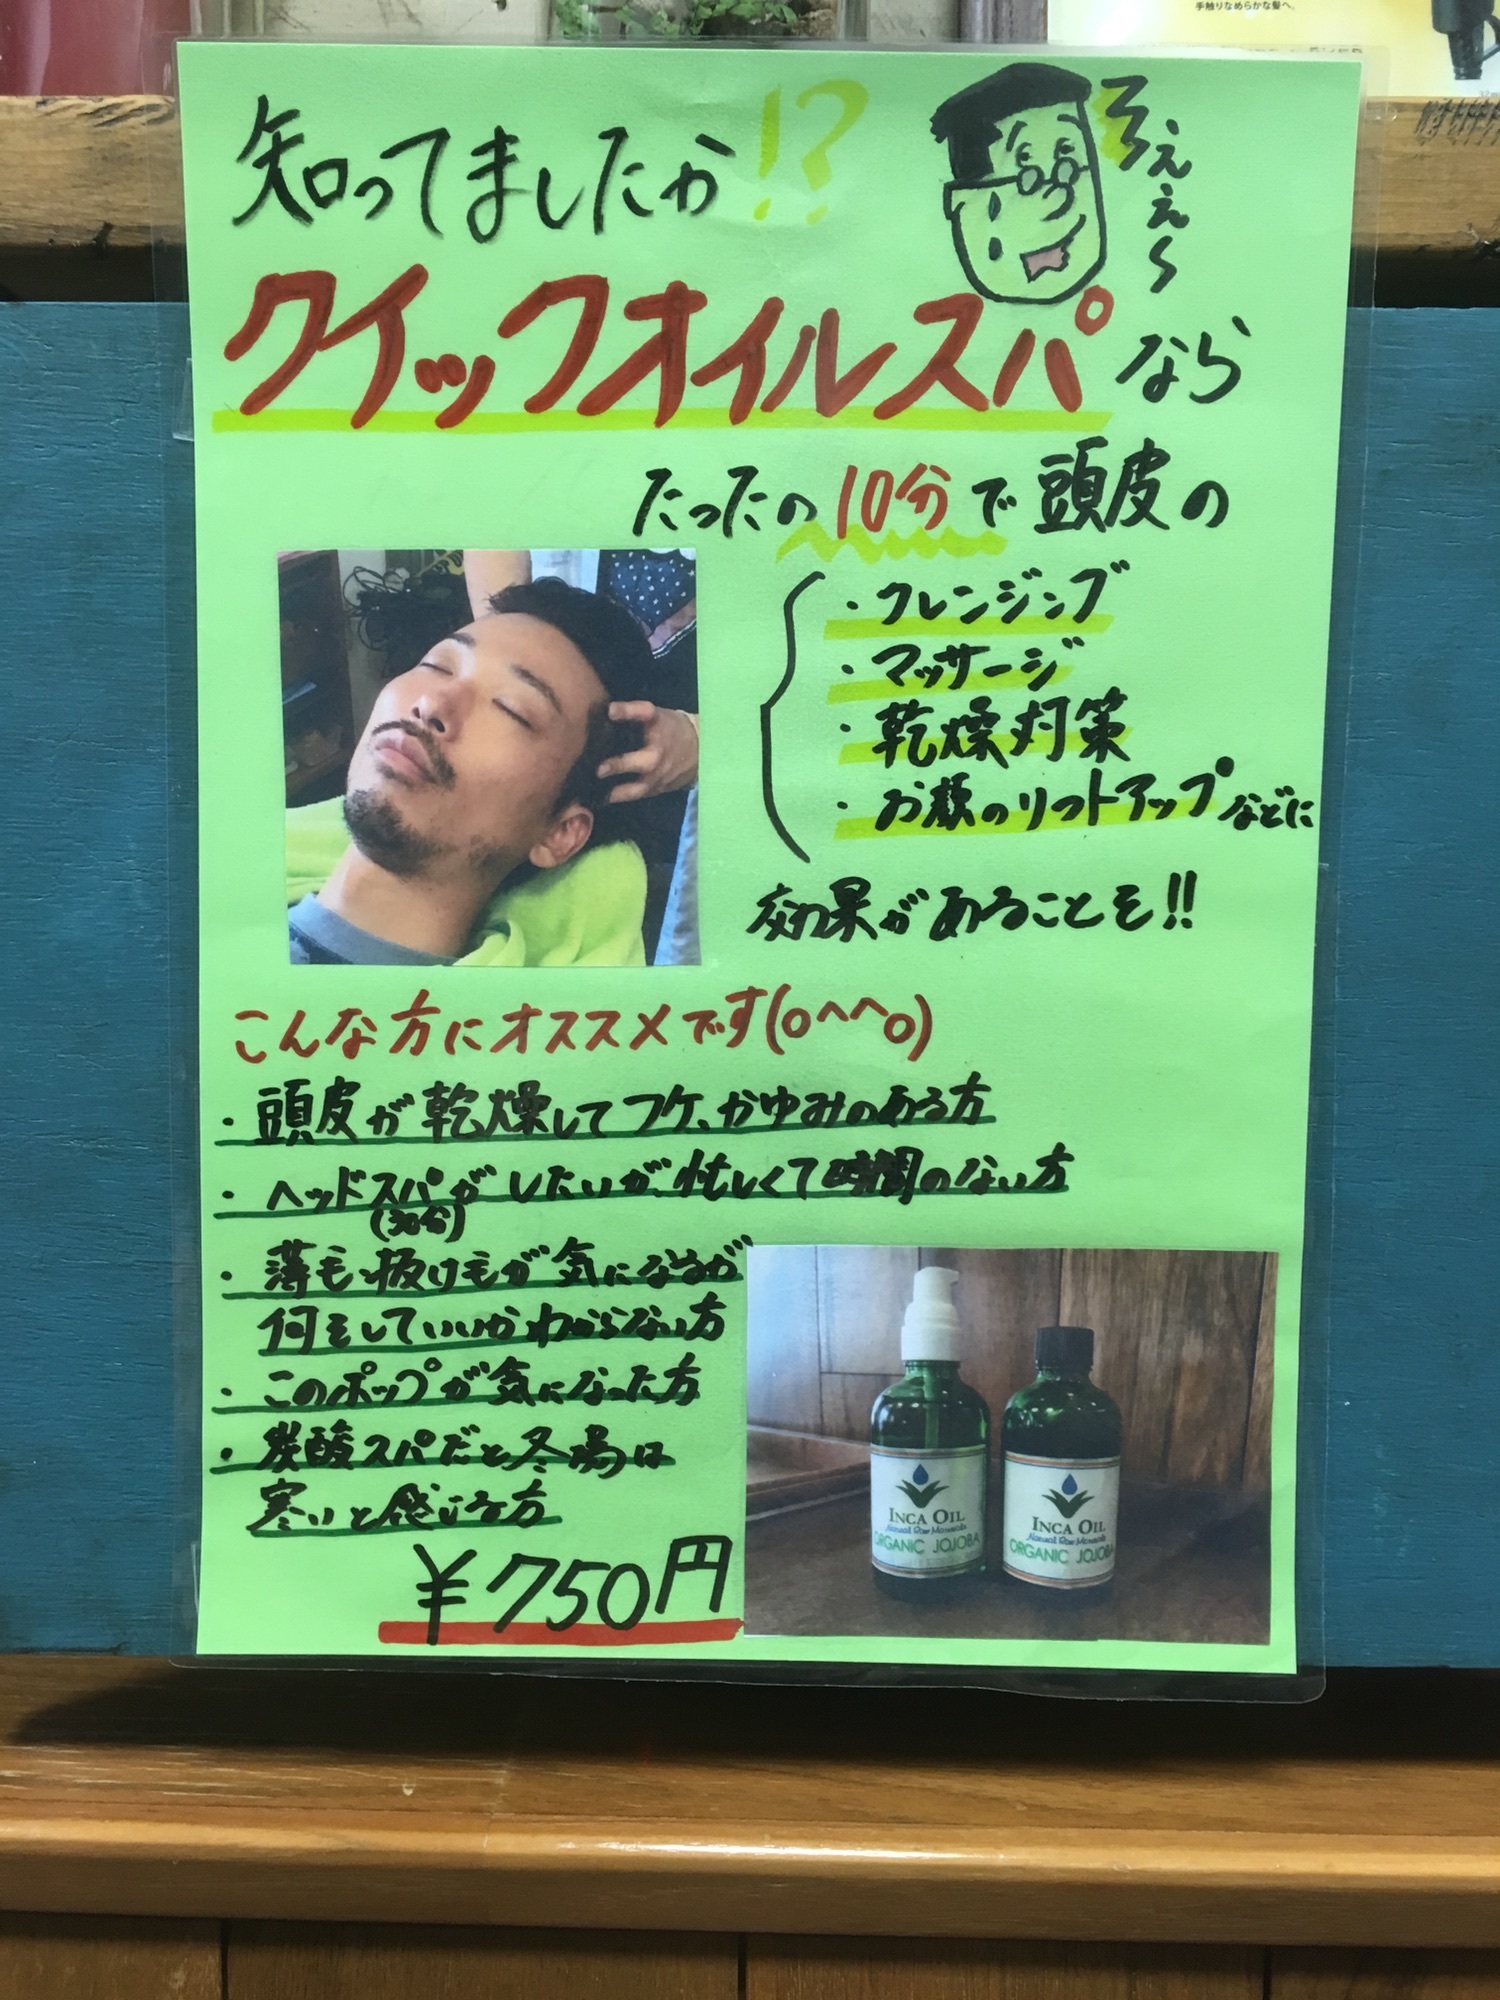 手触りなめらかな髪へ。
知ってましたか!?
そぇぇぇ〜
クイックオイルスパなら
たったの10分で頭皮の
・クレンジング
・マッサージ
・乾燥対策
・お顔のリフトアップなどに
効果があることを!!
こんな方にオススメです(o^^o)
・頭皮が乾燥してフケ、かゆみのある方
・ヘッドスパがしたいが、忙しくて時間のない方
(30分)
・薄毛・抜け毛が気になるが
何をしていいかわからない方
・このポップが気になった方
・炭酸スパだと冬場は
寒いと感じる方
¥750円
INCA OIL
ORGANIC JOJOBA
INCA OIL
ORGANIC JOJOBA